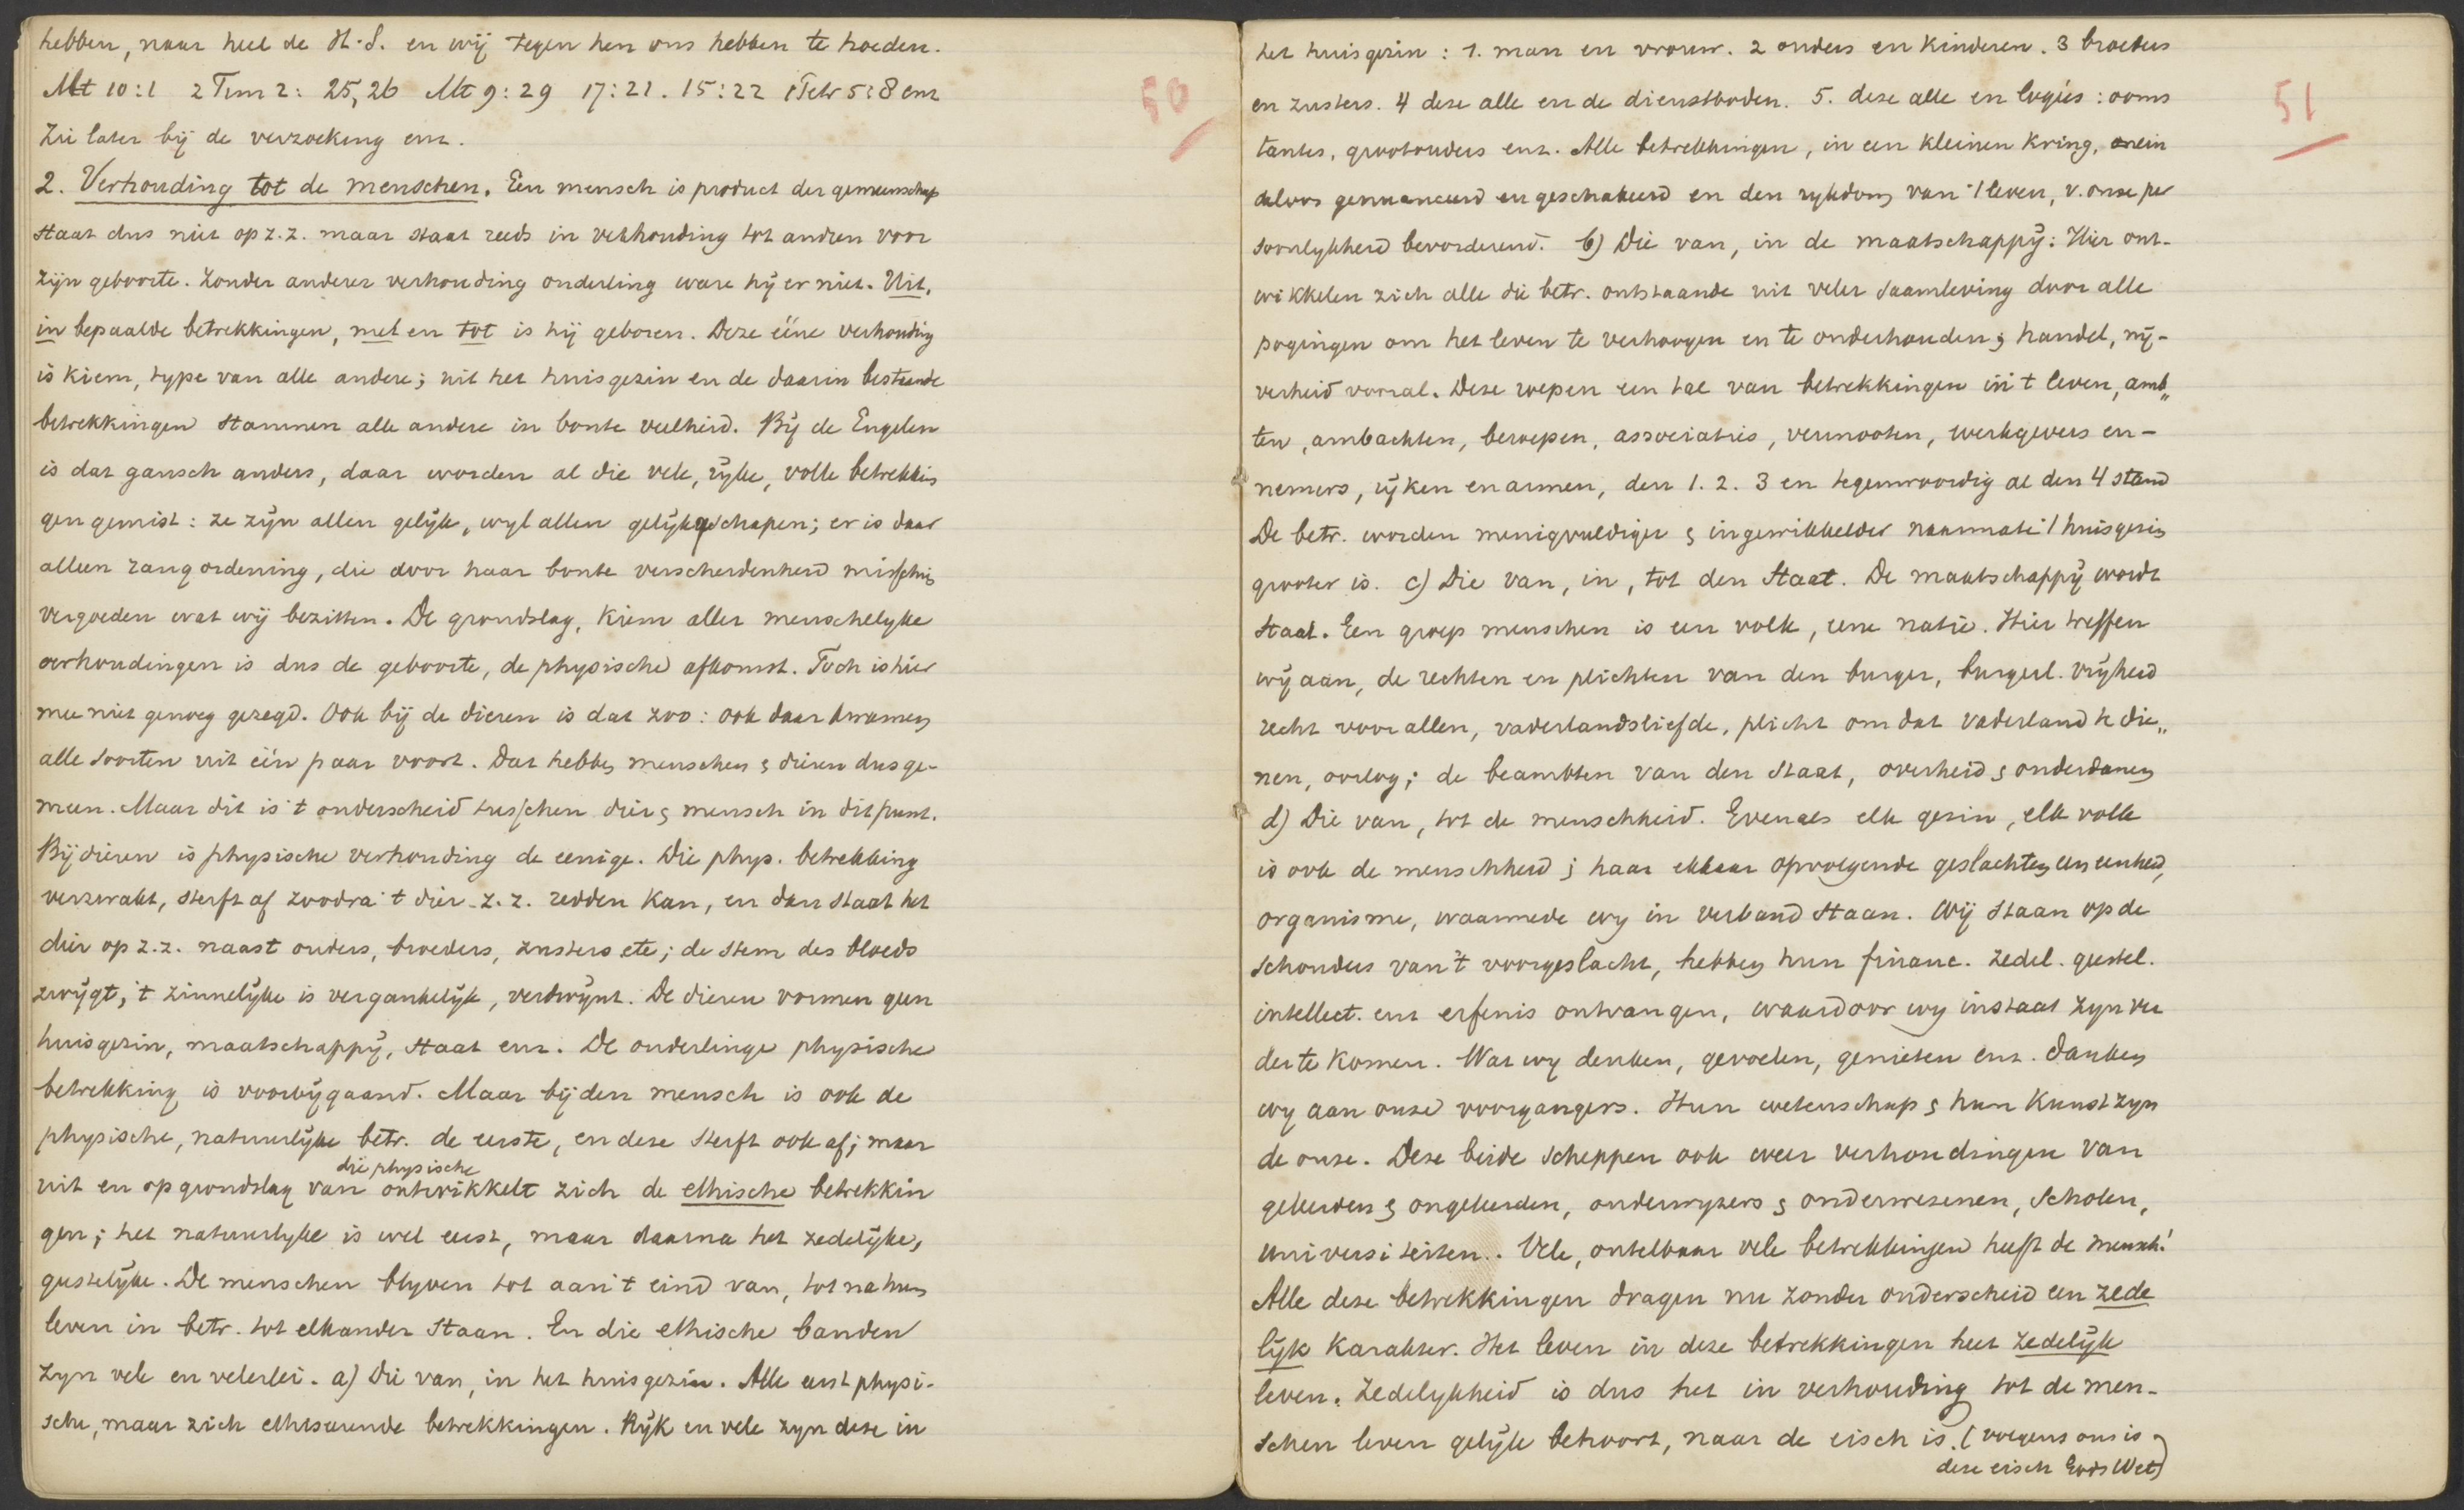 hebben, naar heel de H.S. en wij tegen hen ons hebben te hoeden.
Mt 10:1 2 Tim 2: 25, 26 Mt 9:29 17:21. 15:22 1 Petr 5:8 enz
Zie later bij de verzoeking enz.
50
2. Verhouding tot de menschen. Een mensch is product der gemeenschap
staat dus niet op z.z. maar staat reeds in verhouding tot andren voor
zijn geboorte. Zonder anderer verhouding onderling ware hij er niet. Uit,
in bepaalde betrekkingen, met en tot is hij geboren. Deze ééne verhouding
is kiem, type van alle andere; uit het huisgezin en de daarin bestaande
betrekkingen stammen alle andere in bonte veelheid. Bij de Engelen
is dat gansch anders, daar worden al die vele, rijke, volle betrekkin
gen gemist: ze zijn allen gelijk, wyl allen gelijk geschapen; er is daar
alleen rangordening, die door haar bonte verscheidenheid misschien
vergoeden wat wij bezitten. De grondslag, kiem aller menschelyke
verhoudingen is dus de geboorte, de physische afkomst. Toch is hier
mee niet genoeg gezegd. Ook bij de dieren is dat zoo: ook daar kwamen
alle soorten uit één paar voort. Dat hebben menschen & dieren dus ge-
meen. Maar dit is 't onderscheid tusschen dier & mensch in dit punt.
Bij dieren is physische verhouding de eenige. Die phys. betrekking
verzwakt, sterft af zoodra 't dier z.z. redden kan, en dan staat het
dier op z.z. naast ouders, broeders, zusters etc; de stem des bloeds
zwijgt, 't zinnelijke is vergankelijk, verdwijnt. De dieren vormen geen
huisgezin, maatschappij, staat enz. De onderlinge physische
betrekking is voorbijgaand. Maar bij den mensch is ook de
physische, natuurlijke betr. de eerste, en deze sterft ook af; maar
uit en op grondslag van die physische ontwikkelt zich de ethische betrekkin
gen; het natuurlyke is wel eerst, maar daarna het zedelijke,
geestelijke. De menschen blyven tot aan 't eind van, tot na hun
leven in betr. tot elkander staan. En die ethische banden
zyn vele en velerlei. a) Die van, in het huisgezin. Alle eerst physi-
sche, maar zich ethiseerende betrekkingen. Rijk en vele zyn deze in
het huisgezin: 1. man en vrouw. 2 ouders en kinderen. 3 broeders
en zusters. 4 deze alle en de dienstboden. 5. deze alle en logés: ooms
51
tantes, grootouders enz. Alle betrekkingen, in een kleinen kring, onein
deloos genuanceerd en geschakeerd en den rykdom van 't leven, v. onze per
soonlykheid bevorderend. b) Die van, in de maatschappij: Hier ont-
wikkelen zich alle die betr. ontstaande uit veler saamleving door alle
pogingen om het leven te verhoogen en te onderhouden; handel, nij-
verheid vooral. Deze roepen een tal van betrekkingen in 't leven, amb„
ten, ambachten, beroepen, associaties, vennooten, werkgevers en -
nemers, rijken en armen, den 1. 2. 3 en tegenwoordig al den 4 stand
De betr. worden menigvuldiger & ingewikkelder naarmate 't huisgezin
grooter is. c) Die van, in, tot den Staat. De maatschappij wordt
Staat. Een groep menschen is een volk, eene natie. Hier treffen
wij aan, de rechten en plichten van den burger, burgerl. vrijheid
recht voor allen, vaderlandsliefde, plicht om dat vaderland te die„
nen, oorlog; de beambten van den staat, overheid & onderdanen
d) Die van, tot de menschheid. Evenals elk gezin, elk volk
is ook de menschheid; haar elkaar opvolgende geslachten een eenheid,
organisme, waarmede wy in verband staan. Wij staan op de
schouders van 't voorgeslacht, hebben hun financ. zedel. geestel.
intellect. enz erfenis ontvangen, waardoor wy in staat zyn ver
der te komen. Wat wy denken, gevoelen, genieten enz. danken
wy aan onze voorgangers. Hun wetenschap & hun kunst zyn
de onze. Deze beide scheppen ook weer verhoudingen van
geleerden & ongeleerden, onderwyzers & onderwezenen, scholen,
universiteiten. Vele, ontelbaar vele betrekkingen heeft de mensch!
Alle deze betrekkingen dragen nu zonder onderscheid een zede
lijk karakter. Het leven in deze betrekkingen heet zedelijk
leven. Zedelykheid is dus het in verhouding tot de men-
schen leven gelijk behoort, naar de eisch is. (volgens ons is
deze eisch Gods Wet)